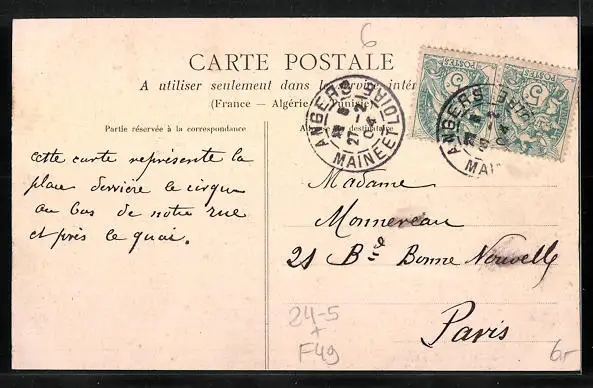 6
CARTE POSTALE
A utiliser seulement dans le service intér
(France — Algérie — Tunisie)
Partie réservée à la correspondance
A destinataire
POSTES
5
POSTES
5
ANGERS
27 -2
04
MAINE ET LOIRE
ANGERS
04
MAI
cette carte représente la
place derrière le cirque
au bas de notre rue
et près le quai.
Madame
Monnereau
21 Bd Bonne Nouvelle
Paris
24-5
+
F49
6r